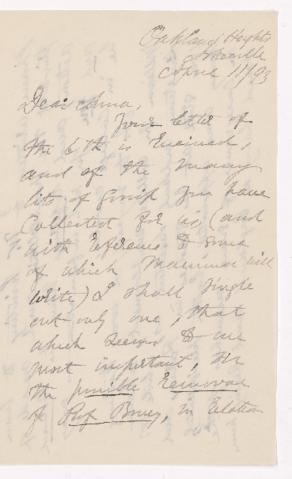 Oakland Heights
Asheville
June 11/93
Dear Anna,
Your letter of
the 6th is received,
and of the many
bits of gossip you have
collected for us, (and
with reference to some
of which Mamma will
write) I shall single
out only one, that
which seems to me
most important, viz
the possible removal
of Prof Bruey, in relation